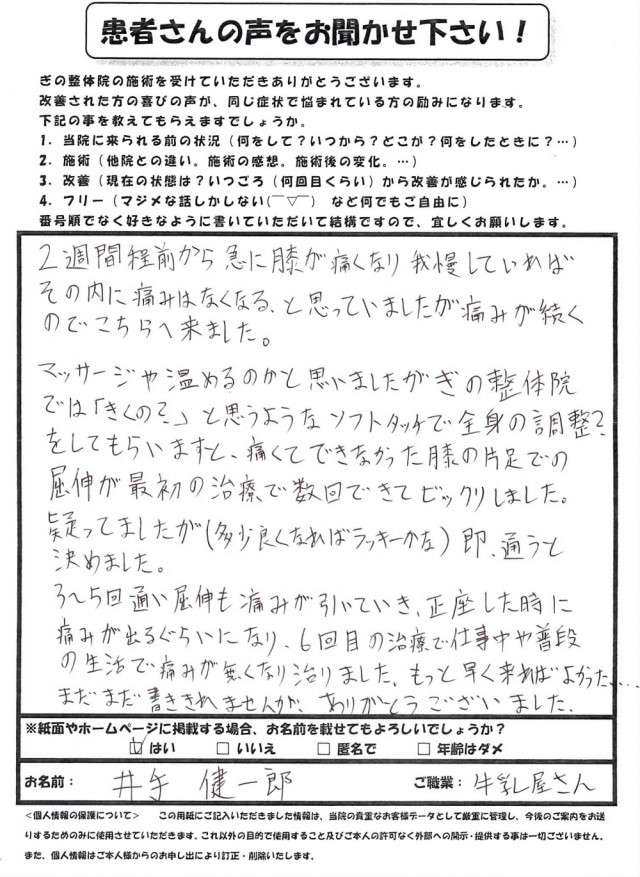 患者さんの声をお聞かせ下さい！
ぎの整体院の施術を受けていただきありがとうございます。
改善された方の喜びの声が、同じ症状で悩まれている方の励みになります。
下記の事を教えてもらえますでしょうか。
1．当院に来られる前の状況（何をして？いつから？どこが？何をしたときに？…）
2．施術（他院との違い。施術の感想。施術後の変化。…）
3．改善（現在の状態は？いつごろ（何回目くらい）から改善が感じられたか。…）
4．フリー（マジメな話しかしない(￣▽￣)　など何でもご自由に）
番号順でなく好きなように書いていただいて結構ですので、宜しくお願いします。
2週間程前から急に膝が痛くなり我慢していれば
その内に痛みはなくなる、と思っていましたが痛みが続く
のでこちらへ来ました。
マッサージや温めるのかと思いましたがぎの整体院
では「きくの？」と思うようなソフトタッチで全身の調整？
をしてもらいますと、痛くてできなかった膝の片足での
屈伸が最初の治療で数回できてビックリしました。
疑ってましたが（多少良くなればラッキーかな）即、通うと
決めました。
3～5回通い屈伸も痛みが引いていき、正座した時に
痛みが出るぐらいになり、6回目の治療で仕事中や普段
の生活で痛みが無くなり治りました。もっと早く来ればよかった……
まだまだ書ききれませんが、ありがとうございました。
※紙面やホームページに掲載する場合、お名前を載せてもよろしいでしょうか？
☑ はい　□ いいえ　□ 匿名で　□ 年齢はダメ
お名前：井手 健一郎　ご職業：牛乳屋さん
＜個人情報の保護について＞　この用紙にご記入いただきました情報は、当院の貴重なお客様データとして厳重に管理し、今後のご案内をお送
りするためのみに使用させていただきます。これ以外の目的で使用すること及びご本人の許可なく外部への開示・提供する事は一切ございません。
また、個人情報はご本人様からのお申し出により訂正・削除いたします。